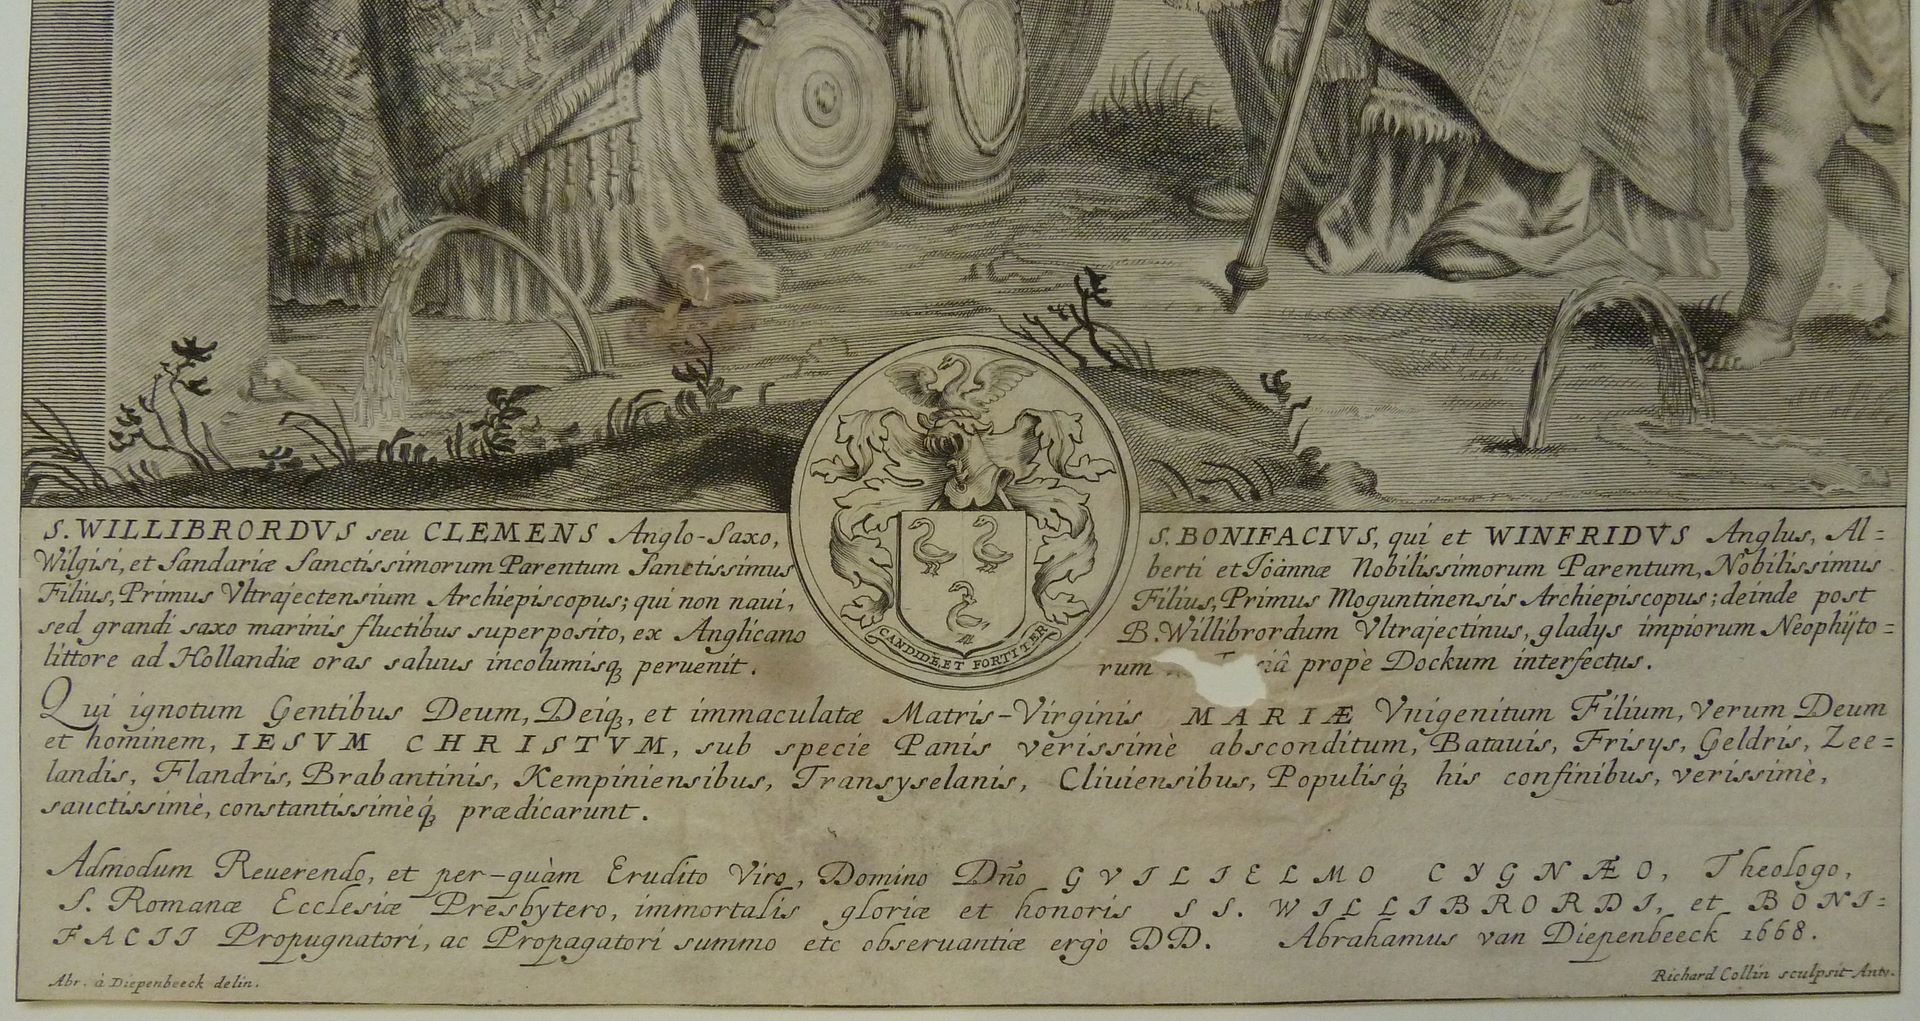 S. WILLIBRORDVS seu CLEMENS Anglo-Saxo,
Wilgisi, et Sandariæ Sanctissimorum Parentum Sanctissimus
Filius, Primus Vltrajectensium Archiepiscopus; qui non naui,
sed grandi saxo marinis fluctibus superposito, ex Anglicano
littore ad Hollandiæ oras saluus incolumisq̃ peruenit.
S. BONIFACIVS, qui et WINFRIDVS Anglus, Al=
berti et Ioannæ Nobilissimorum Parentum, Nobilissimus
Filius, Primus Moguntinensis Archiepiscopus; deinde post
B. Willibrordum Vltrajectinus, gladys impiorum Neophÿto=
rum propè Dockum interfectus.
CANDIDE, ET FORTITER
Qui ignotum Gentibus Deum, Deiq̃, et immaculatæ Matris-Virginis MARIÆ Vnigenitum Filium, verum Deum
et hominem, IESVM CHRISTVM, sub specie Panis verissimè absconditum, Batauis, Frisys, Geldris, Zee=
landis, Flandris, Brabantinis, Kempiniensibus, Transyselanis, Cliuiensibus, Populisq́ his confinibus, verissimè,
sanctissimè, constantissimèq́ prædicarunt.
Admodum Reuerendo, et per-quàm Erudito Viro, Domino Dño GVILIELMO CYGNÆO, Theologo,
S. Romanæ Ecclesiæ Presbytero, immortalis gloriæ et honoris SS. WILLIBRORDI, et BONI=
FACII Propugnatori, ac Propagatori summo etc obseruantiæ ergò DD. Abrahamus van Diepenbeeck 1668.
Abr. à Diepenbeeck delin.
Richard Collin sculpsit Antv.